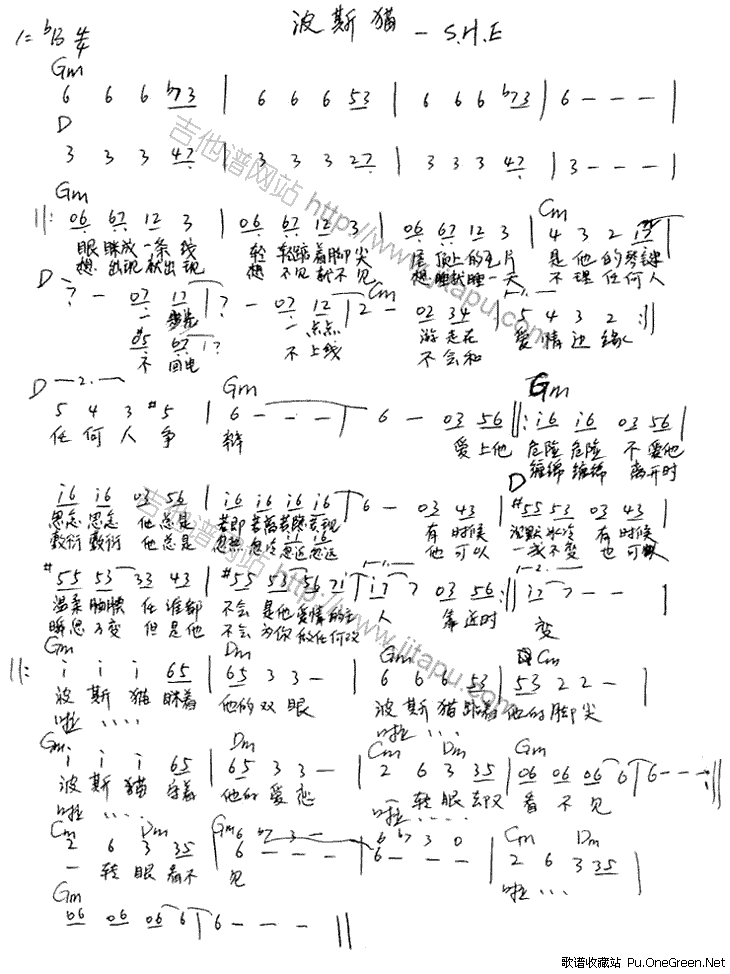 波斯猫 - S.H.E
1=ᵇB 4/4
Gm
6 6 6 ᵇ7 3 | 6 6 6 5 3 | 6 6 6 ᵇ7 3 | 6 - - - |
D
3 3 3 4 7 | 3 3 3 2 7 | 3 3 3 4 7 | 3 - - - |
Gm Cm
||: 06 67 12 3 | 06 67 12 3 | 06 67 12 3 | 4 3 2
眼眯成一条线 轻轻踮着脚尖 屋顶上的瓦片 是他的琴键
想出现就出现 想不见就不见 想睡就睡一天 不理任何人
D Cm
- 07 17 - 07 12 2 - 02 34 | 5 4 3 2 :||
一 一点点 游走在 爱情边缘
05 67
不回电 不上线 不会和
D 2. Gm Gm
5 4 3 #5 | 6 - - - | 6 - 03 56 ||: i6 i6 03 56 |
任何人争 辩 爱上他 危险危险 不爱他
缠绵缠绵 离开时
D
i6 i6 03 56 | i6 i6 i6 i6 | 6 - 03 43 | #55 53 03 43 |
思念思念 他总是 若即若离若隐若现 有时候 沉默冰冷 有时候
敷衍敷衍 他总是 忽热忽冷忽近忽远 他可以 一成不变 也可以
#55 53 33 43 | #55 53 56 7i | 03 56 :||
温柔腼腆 任谁都 不会是他爱情的主 人 靠近时 变
瞬息万变 但是他 不会为你做任何改
Gm Dm Gm Cm
||: i i i 65 | 65 3 3 - | 6 6 6 53 | 53 2 2 - |
波斯猫眯着 他的双眼 波斯猫踮着 他的脚尖
啦 .... 啦 ....
Gm Dm Cm Dm Gm
i i i 65 | 65 3 3 - | 2 6 3 35 | 06 06 06 6 | 6 - - - :||
波斯猫守着 他的爱恋 一转眼却又 看不见
啦 .... 啦 ....
Cm Dm Gm Cm Dm
2 6 3 35 | 6 - - - | 6 - - - | 2 6 3 35 |
6 ᵇ7 3 - 6 ᵇ7 3 0
一转眼看不 见 啦 ...
Gm
06 06 06 6 | 6 - - - ||
吉他谱网站 http://www.jitapu.com
吉他谱网站 http://www.jitapu.com
歌谱收藏站 Pu.OneGreen.Net